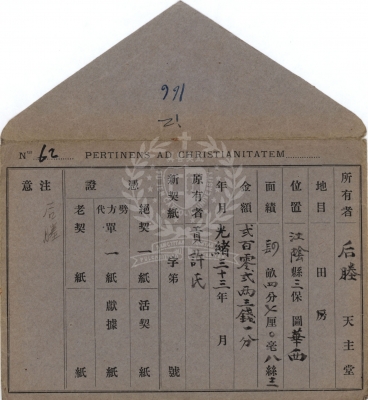 166
12
Nᵒ 62 PERTINENS AD CHRISTIANITATEM
所有者 后塍 天主堂
地目 田 房
位置 江陰縣三保 圖 華西
面積 畝四分七厘〇毛八絲三
金額 弍百零弍两三錢一分
年月 光緒三十三年 月
原有者 賣 許氏
新契紙 字第 號
憑證
絕契 一紙 活契 紙
代勞方單 一紙 獻據 紙
老契 紙
注意 后塍